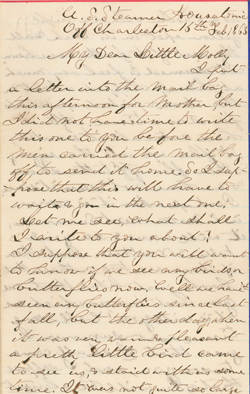 U.S. Steamer Housatonic
Off Charleston 15th Feb, 1863
My Dear Little Molly
I put
a letter into the mail bag
this afternoon for Mother, but
I did not have time to write
this one to you before the
men carried the mail bag
off to send it home. So I sup-
pose that this will have to
wait & go in the next one.
Let me see, what shall
I write to you about?
I suppose that you will want
to know if we see any birds or
butterflies now, well we havnt
seen any butterflies since last
fall, but the other day when
it was very pleasant
a pretty little bird came
to see us, & staid with us some
time. It was not quite so large